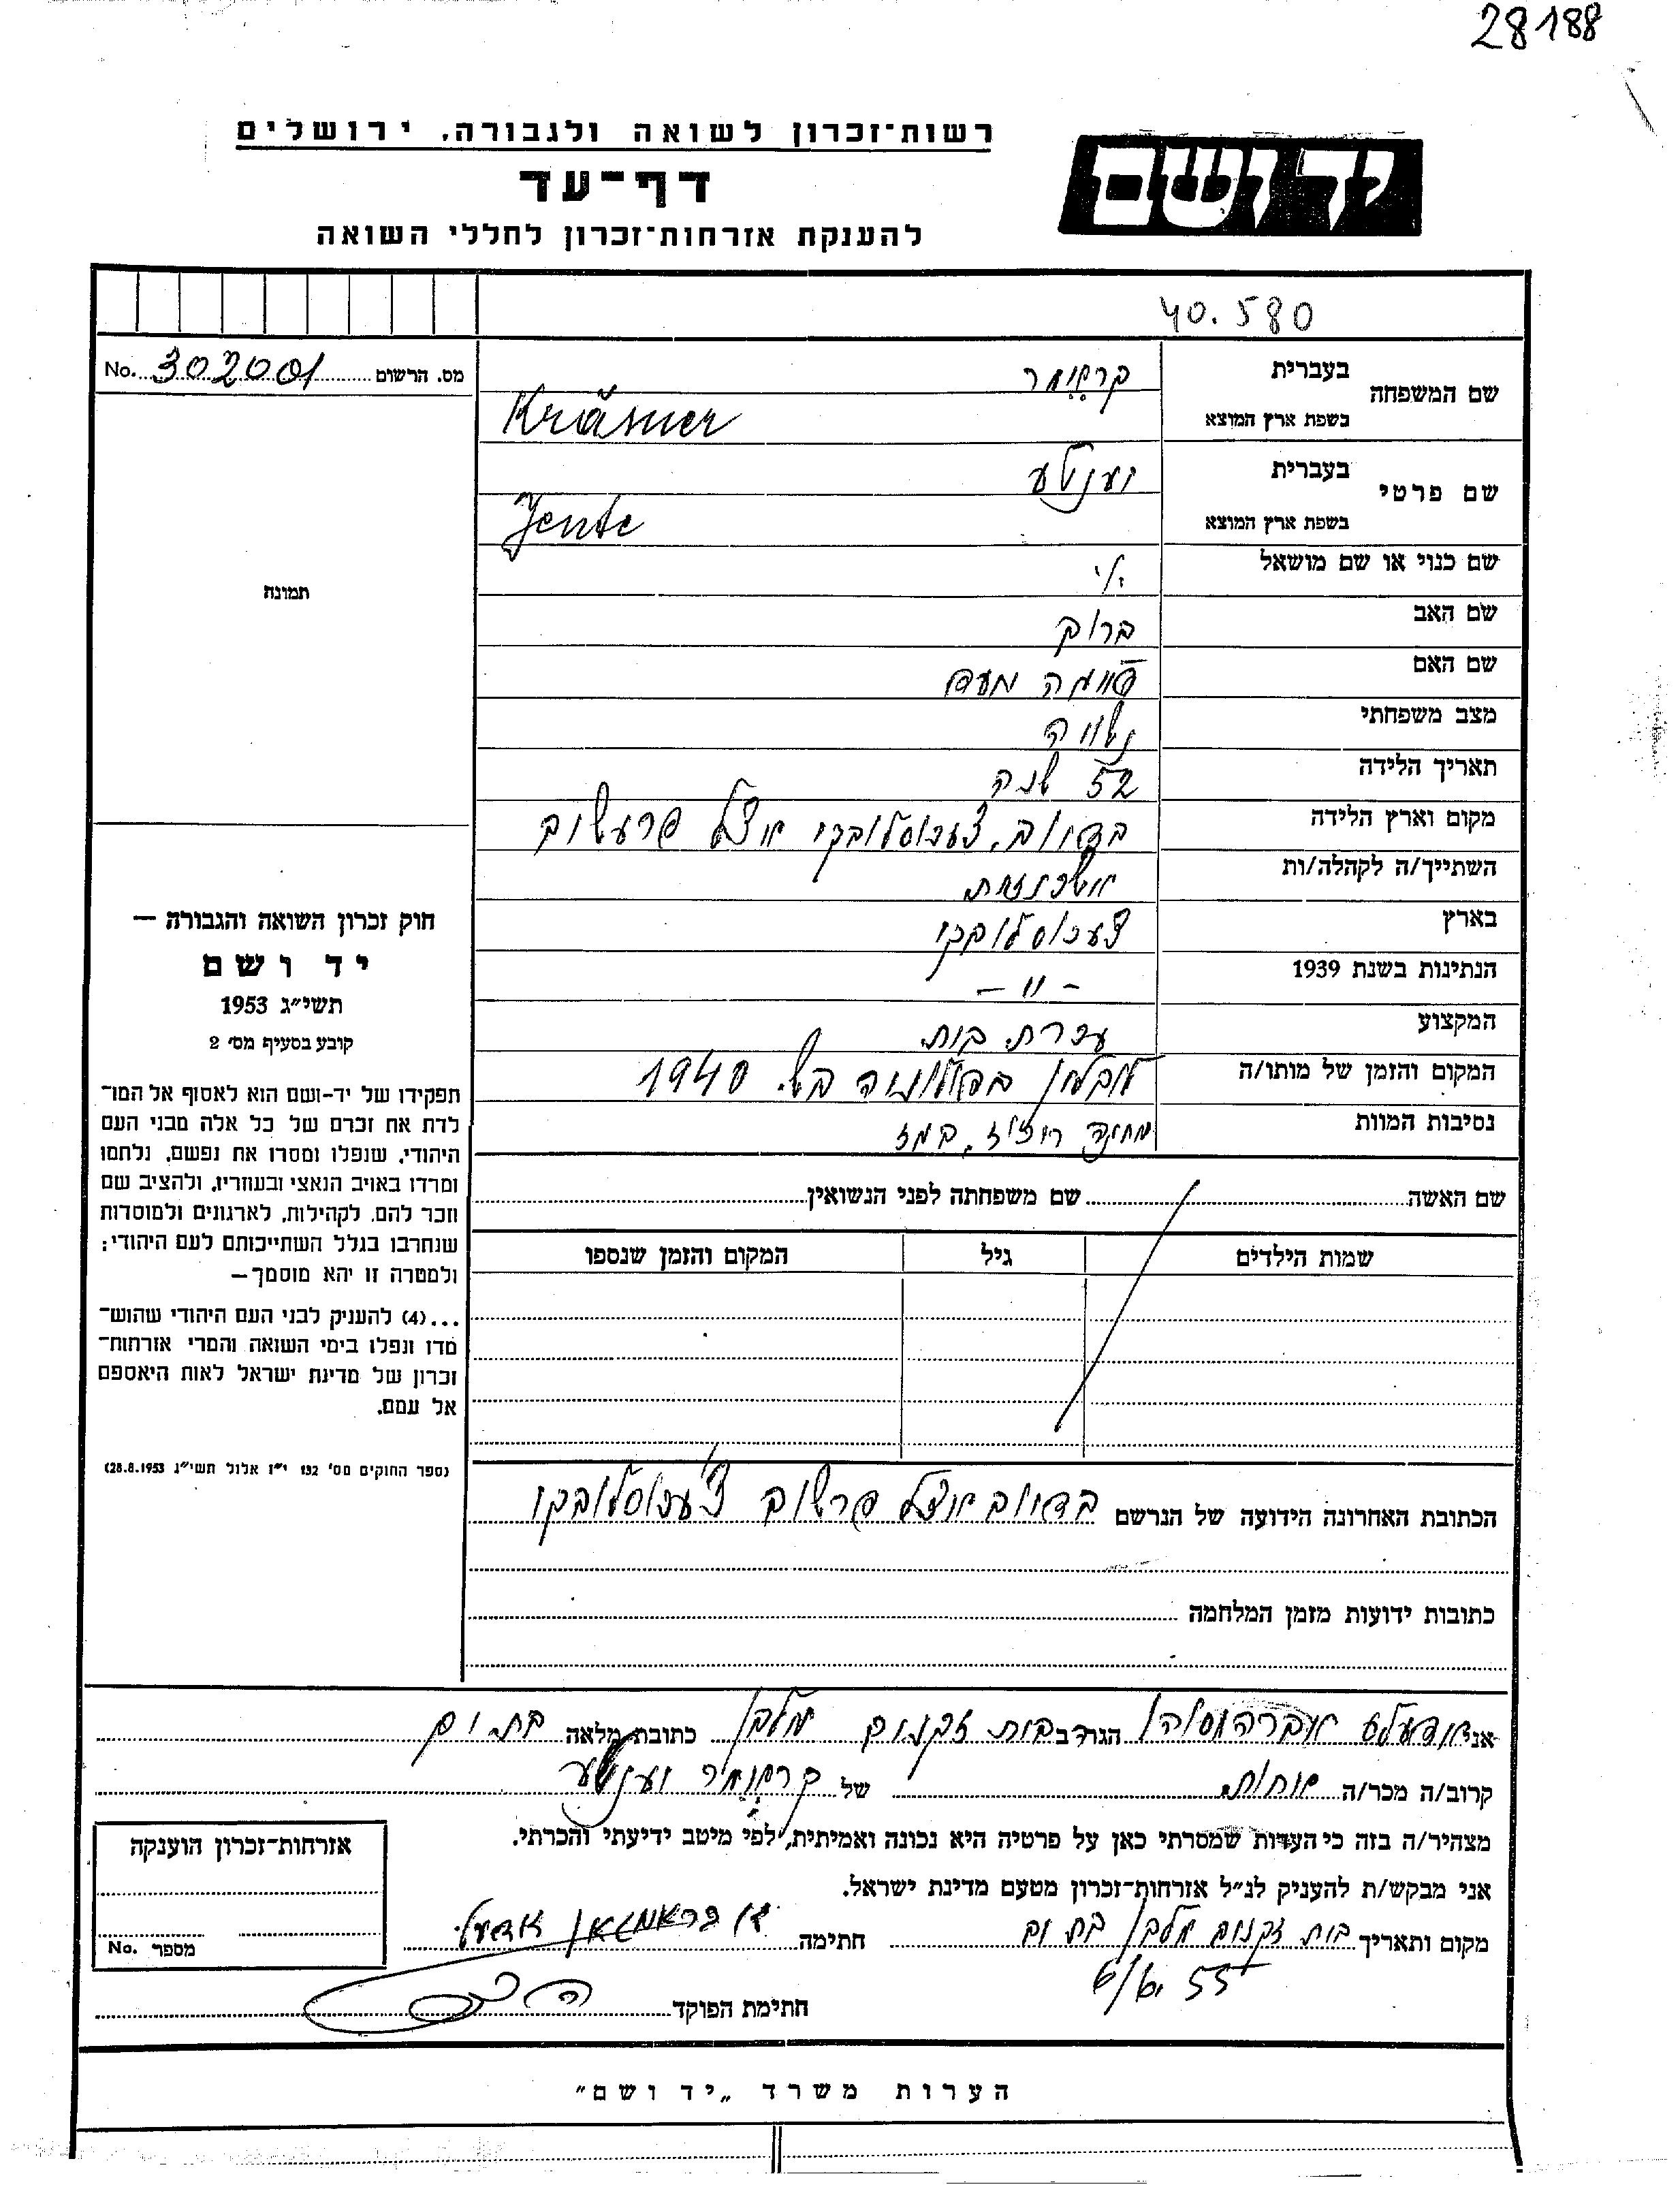 28188
רשות־זכרון לשואה ולגבורה, ירושלים
יד ושם
דף־עד
להענקת אזרחות־זכרון לחללי השואה
40.580
מס. הרשום No. 302001
שם המשפחה
בעברית
בשפת ארץ המוצא
Kräsmer
שם פרטי
בעברית יענטע
בשפת ארץ המוצא
Jente
שם כנוי או שם מושאל
שם האב ברוך
שם האם
מצב משפחתי נשואה
תאריך הלידה 52 שנה
מקום וארץ הלידה
השתייך/ה לקהלה/ות אשכנזית
בארץ
הנתינות בשנת 1939 – 〃 –
המקצוע עקרת בית
המקום והזמן של מותו/ה לובלין בפולוניה בש. 1940
נסיבות המוות
שם האשה שם משפחתה לפני הנשואין
שמות הילדים גיל המקום והזמן שנספו
תמונה
חוק זכרון השואה והגבורה —
יד ושם
תשי״ג 1953
קובע בסעיף מס׳ 2
תפקידו של יד-ושם הוא לאסוף אל המו־
לדת את זכרם של כל אלה מבני העם
היהודי, שנפלו ומסרו את נפשם, נלחמו
ומרדו באויב הנאצי ובעוזריו, ולהציב שם
וזכר להם, לקהילות, לארגונים ולמוסדות
שנחרבו בגלל השתייכותם לעם היהודי;
ולמטרה זו יהא מוסמך—
...(4) להעניק לבני העם היהודי שהוש־
מדו ונפלו בימי השואה והמרי אזרחות־
זכרון של מדינת ישראל לאות היאספם
אל עמם.
(ספר החוקים מס׳ 132 י״ז אלול תשי״ג 28.8.1953)
הכתובת האחרונה הידועה של הנרשם
כתובות ידועות מזמן המלחמה
אני הגר בבית זקנים מלבן כתובת מלאה בת ים
קרוב/ה מכר/ה אחות של יענטע
מצהיר/ה בזה כי העדות שמסרתי כאן על פרטיה היא נכונה ואמיתית, לפי מיטב ידיעתי והכרתי.
אני מבקש/ת להעניק לנ״ל אזרחות-זכרון מטעם מדינת ישראל.
מקום ותאריך בית זקנים מלבן בת ים חתימה
6/6. 55
חתימת הפוקד
אזרחות-זכרון הוענקה
מספר No.
הערות משרד „יד ושם״